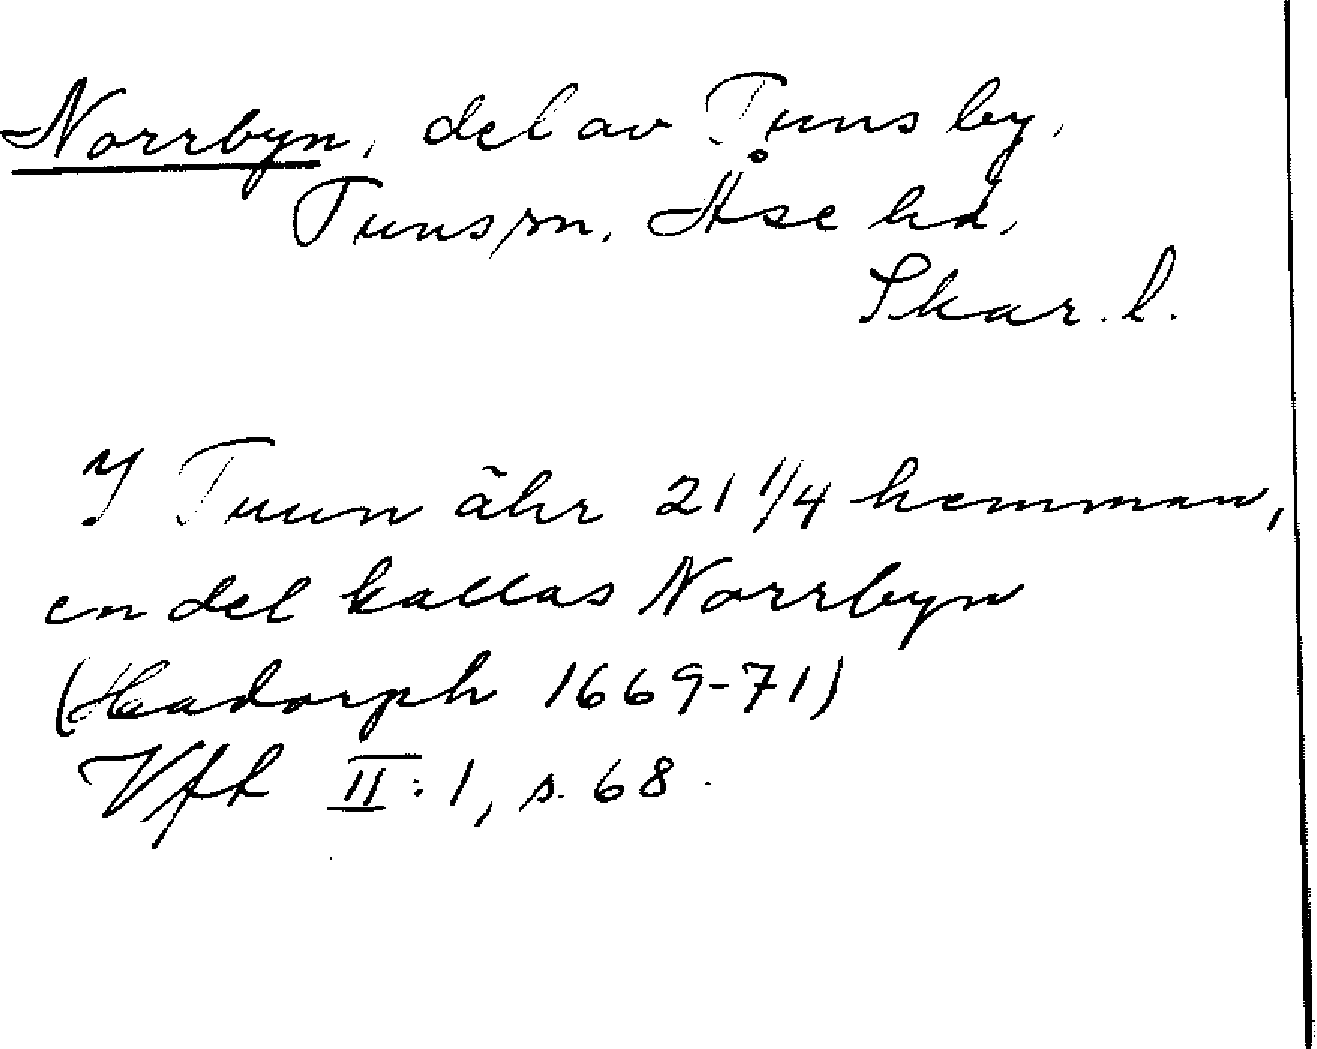 Norrbyn, del av Tuns by,
Tuns sn, Åse hd,
Skar. l.
I Tuun ähr 21 1/4 hemman,
en del kallas Norrbyn
(Hadorph 1669-71)
Vft II:1, s. 68.